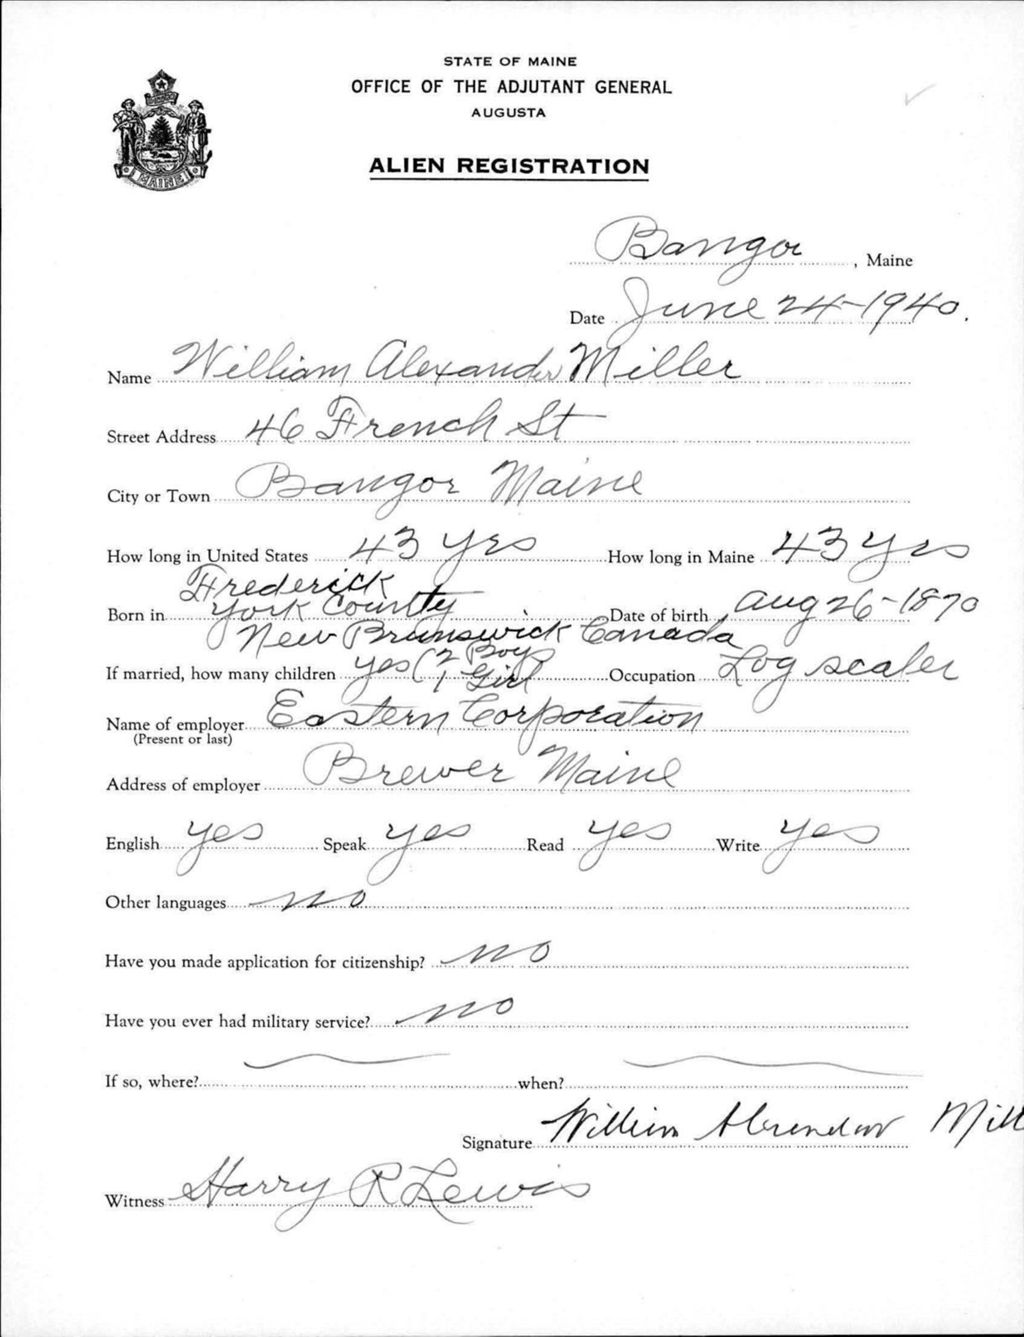 STATE OF MAINE
OFFICE OF THE ADJUTANT GENERAL
AUGUSTA
ALIEN REGISTRATION
MAINE
Bangor, Maine
Date June 24-1940.
Name William Alexander Miller
Street Address 46 French St
City or Town Bangor Maine
How long in United States 43 yrs How long in Maine 43 yrs
Frederick
Born in York County Date of birth Aug 26-1870
New Brunswick Canada
If married, how many children yes (2 Boys 1 Girl Occupation Log scaler
Name of employer Eastern Corporation
(Present or last)
Address of employer Brewer Maine
English yes Speak yes Read yes Write yes
Other languages no
Have you made application for citizenship? no
Have you ever had military service? no
If so, where? when?
Signature William Alexander Mill
Witness Harry R Lewis